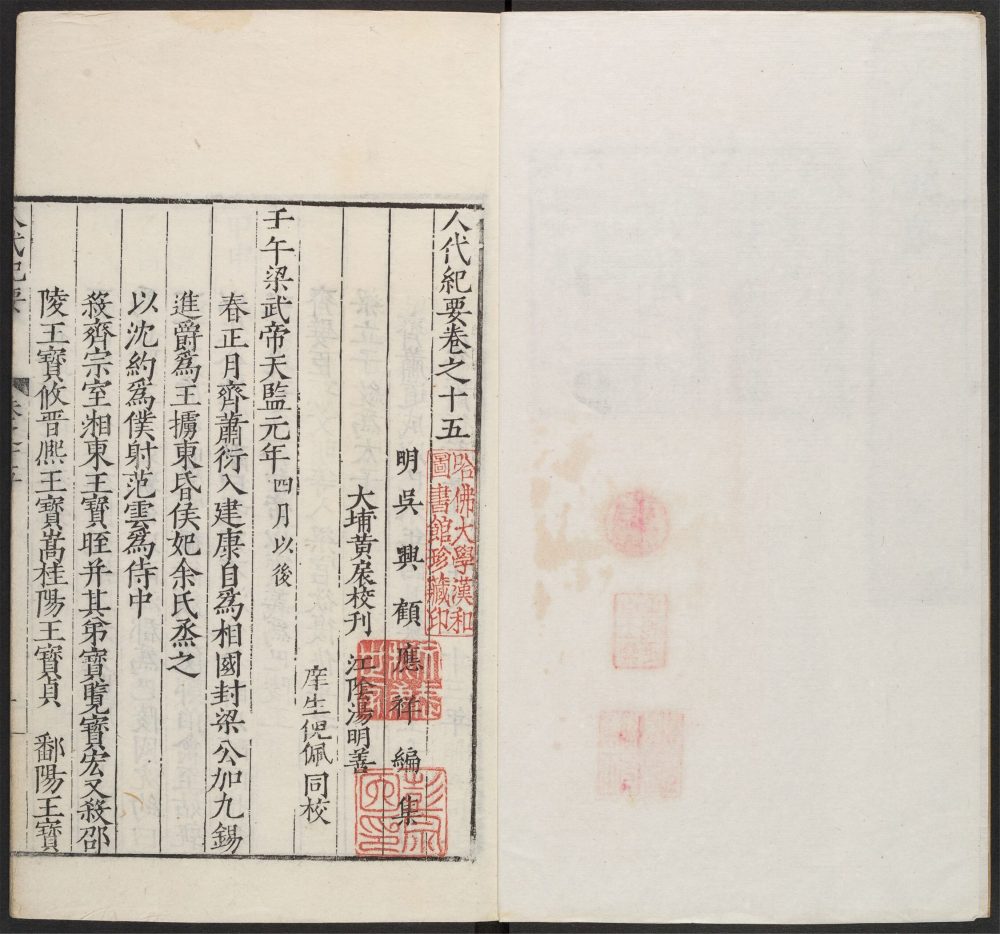 人代紀要卷之十五
哈佛大學漢和
圖書館珍藏印
明吳興顧應祥編集
大埔黃扆校刊 江陰湯明善
庠生倪佩同校
壬午梁武帝天監元年四月以後
春正月齊蕭衍入建康自爲相國封梁公加九錫
進爵爲王擄東昏侯妃余氏烝之
以沈約爲僕射范雲爲侍中
殺齊宗室湘東王寶晊幷其弟寶覽寶宏又殺邵
陵王寶攸晋熈王寶嵩桂陽王寶貞 鄱陽王寶
人代紀要